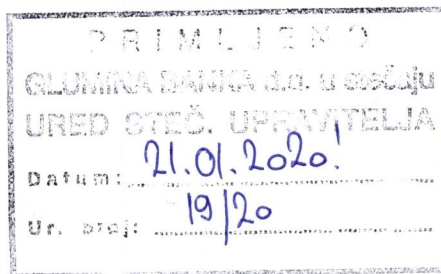 PRIMLJENO
GLUMINA BANKA d.d. u stečaju
URED STEČ. UPRAVITELJA
Datum: 21.01.2020!
Ur. broj: 19/20